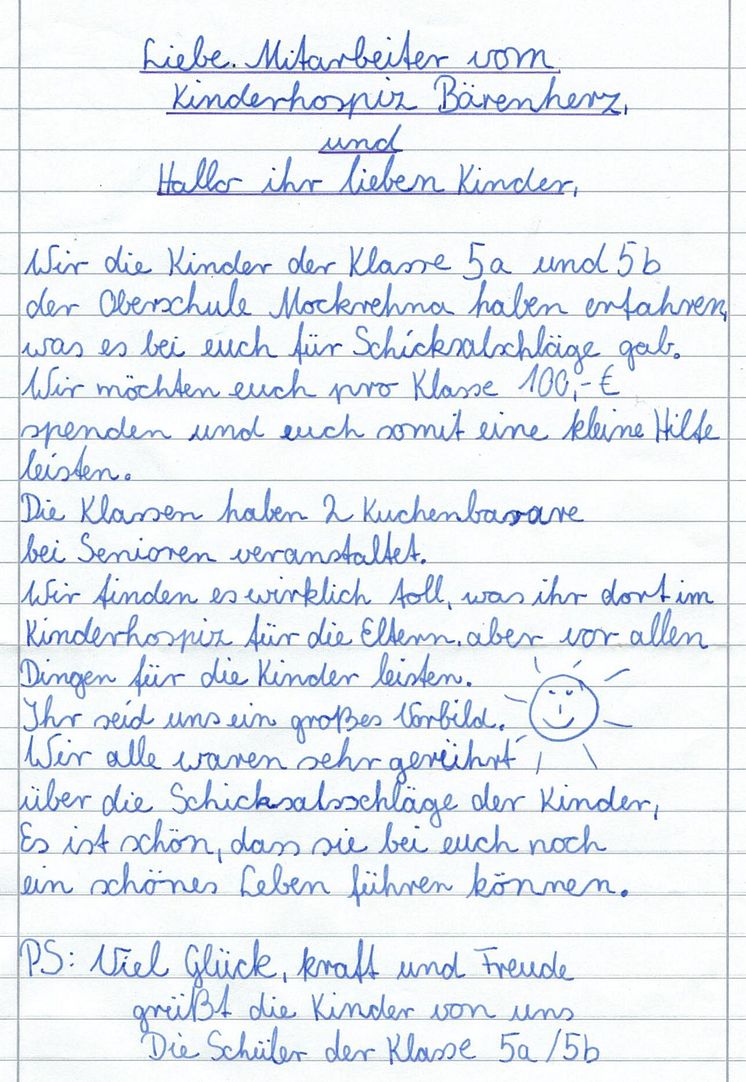 Liebe. Mitarbeiter vom
Kinderhospiz Bärenherz,
und
Hallo ihr lieben Kinder,
Wir die Kinder der Klasse 5a und 5b
der Oberschule Mockrehna haben erfahren,
was es bei euch für Schicksalschläge gab.
Wir möchten euch pro Klasse 100,-€
spenden und euch somit eine kleine Hilfe
leisten.
Die Klassen haben 2 Kuchenbasare
bei Senioren veranstaltet.
Wir finden es wirklich toll, was ihr dort im
Kinderhospiz für die Eltern, aber vor allen
Dingen für die Kinder leisten.
Ihr seid uns ein großes Vorbild.
Wir alle waren sehr gerührt
über die Schicksalsschläge der Kinder,
Es ist schön, dass sie bei euch noch
ein schönes Leben führen können.
PS: Viel Glück, kraft und Freude
grüßt die Kinder von uns
Die Schüler der Klasse 5a/5b